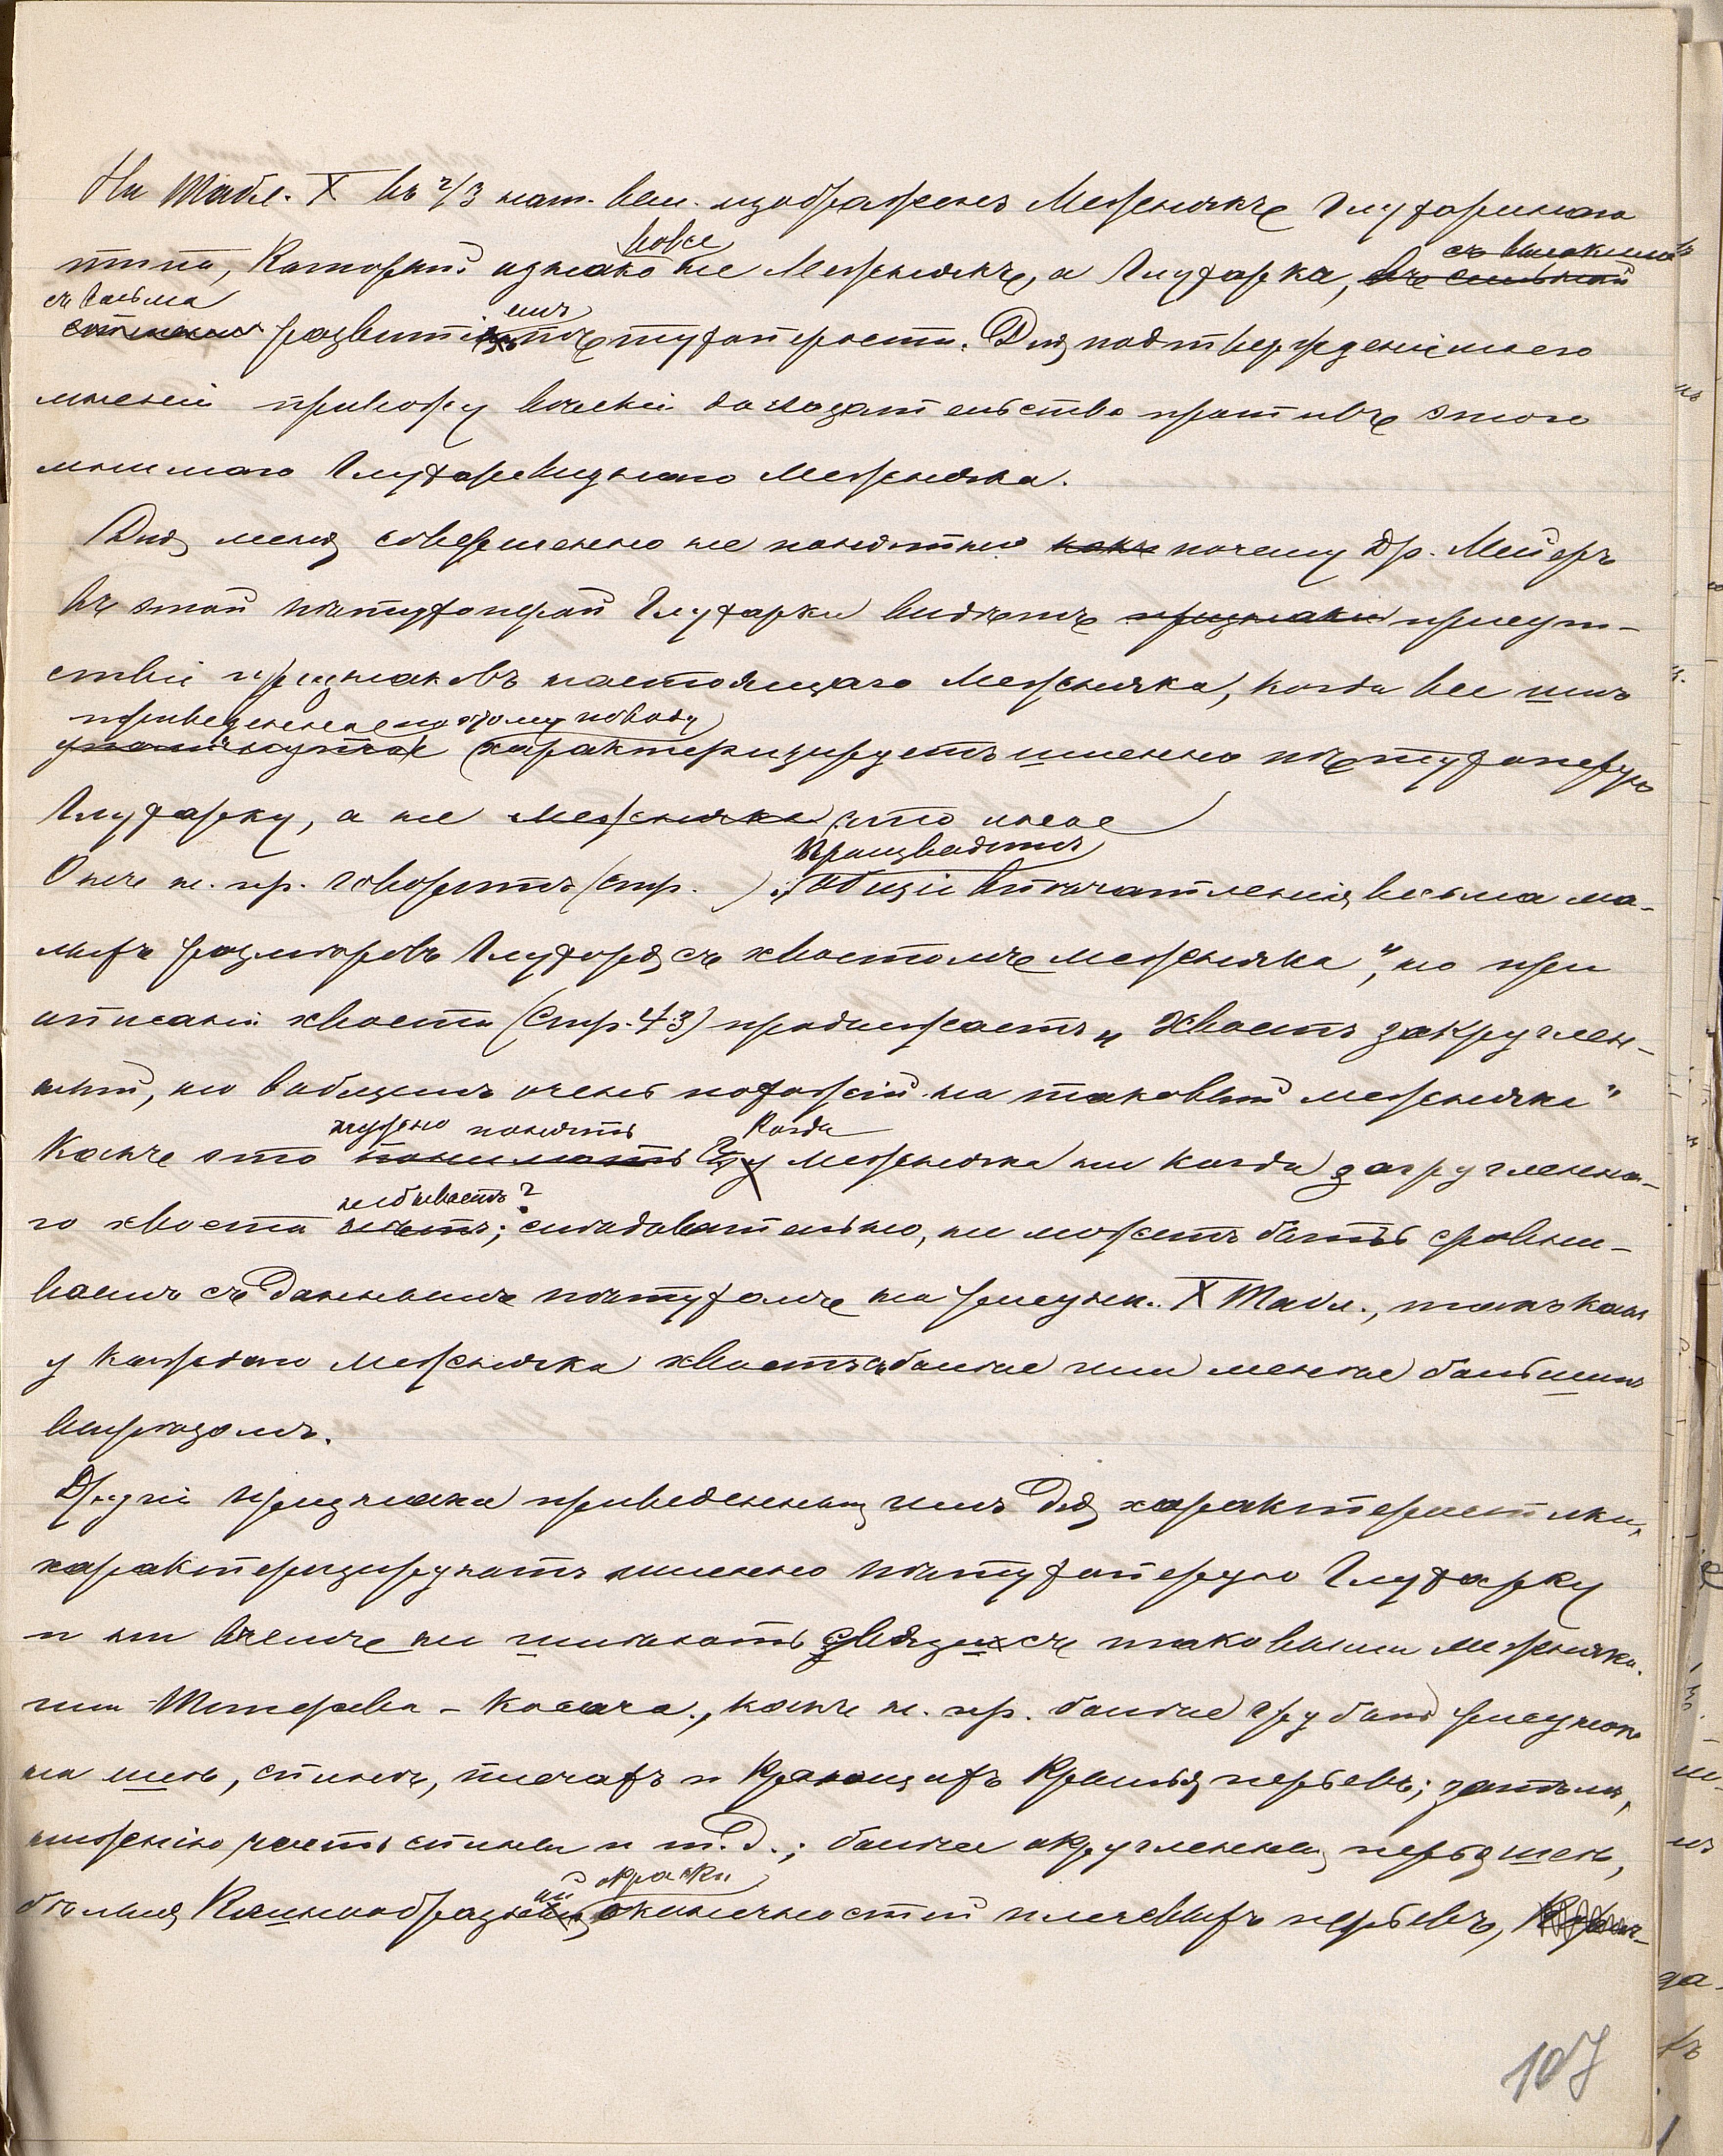 На Табл. X въ 2/3 нат. вел. изображенъ Межнякъ Глухаринаго
типа, Который однако вовсе не Межнякъ, а Глухарка,
съ весьма развитіемъ пѣтухоперости. Для подтвержденія моего
мненія привожу вѣскія доказательства противъ этого
мнимаго Глухаревиднаго Межняка.
Для меня совершенно не понятно почему Др. Мейеръ
въ этой пѣтухоперой Глухарки видѣтъ присут-
ствіи признаковъ настоящаго Межняка, когда все имъ
приведенное по этому поводу характеризируетъ именно пѣтухоперую
Глухарку, а не что иное
Онъ н. пр. говоритъ (стр. ) „Общіи впечатленія производитъ весьма ма-
лыхъ размѣровъ Глухаря съ хвостомъ межняка", но при
описаніи хвоста (Стр. 43) продолжаетъ „Хвостъ закруглен-
ный, но вобщемъ очень похожій на таковый межняка"
Какъ это нужно понять Когда у Межняка ни когда закругленна-
го хвоста не бываетъ?; слѣдовательно, не можетъ быть сравни-
ваемъ съ даннымъ пѣтухомъ на рисунк. X Табл., такъ какъ
у каждаго Межняка хвостъ съ болѣе или менѣе большимъ
вырѣзомъ.
Другіи признака приведенныя имъ для характеристики,
характеризируютъ именно пѣтухоперую Глухарку
и ни вчемъ не имѣютъ связи съ таковыми Межняка
или Тетерева-Косача., какъ н. пр. болѣе грубый рисунокъ
на шеѣ, спинѣ, плечахъ и Кроющихъ Крылья перьевъ; затѣмъ,
нижнію часть спины и т. д.; болѣе округленныя перья шеи,
бѣлыя Клинообразный окраски оконечностій плечевыхъ перьевъ,
107